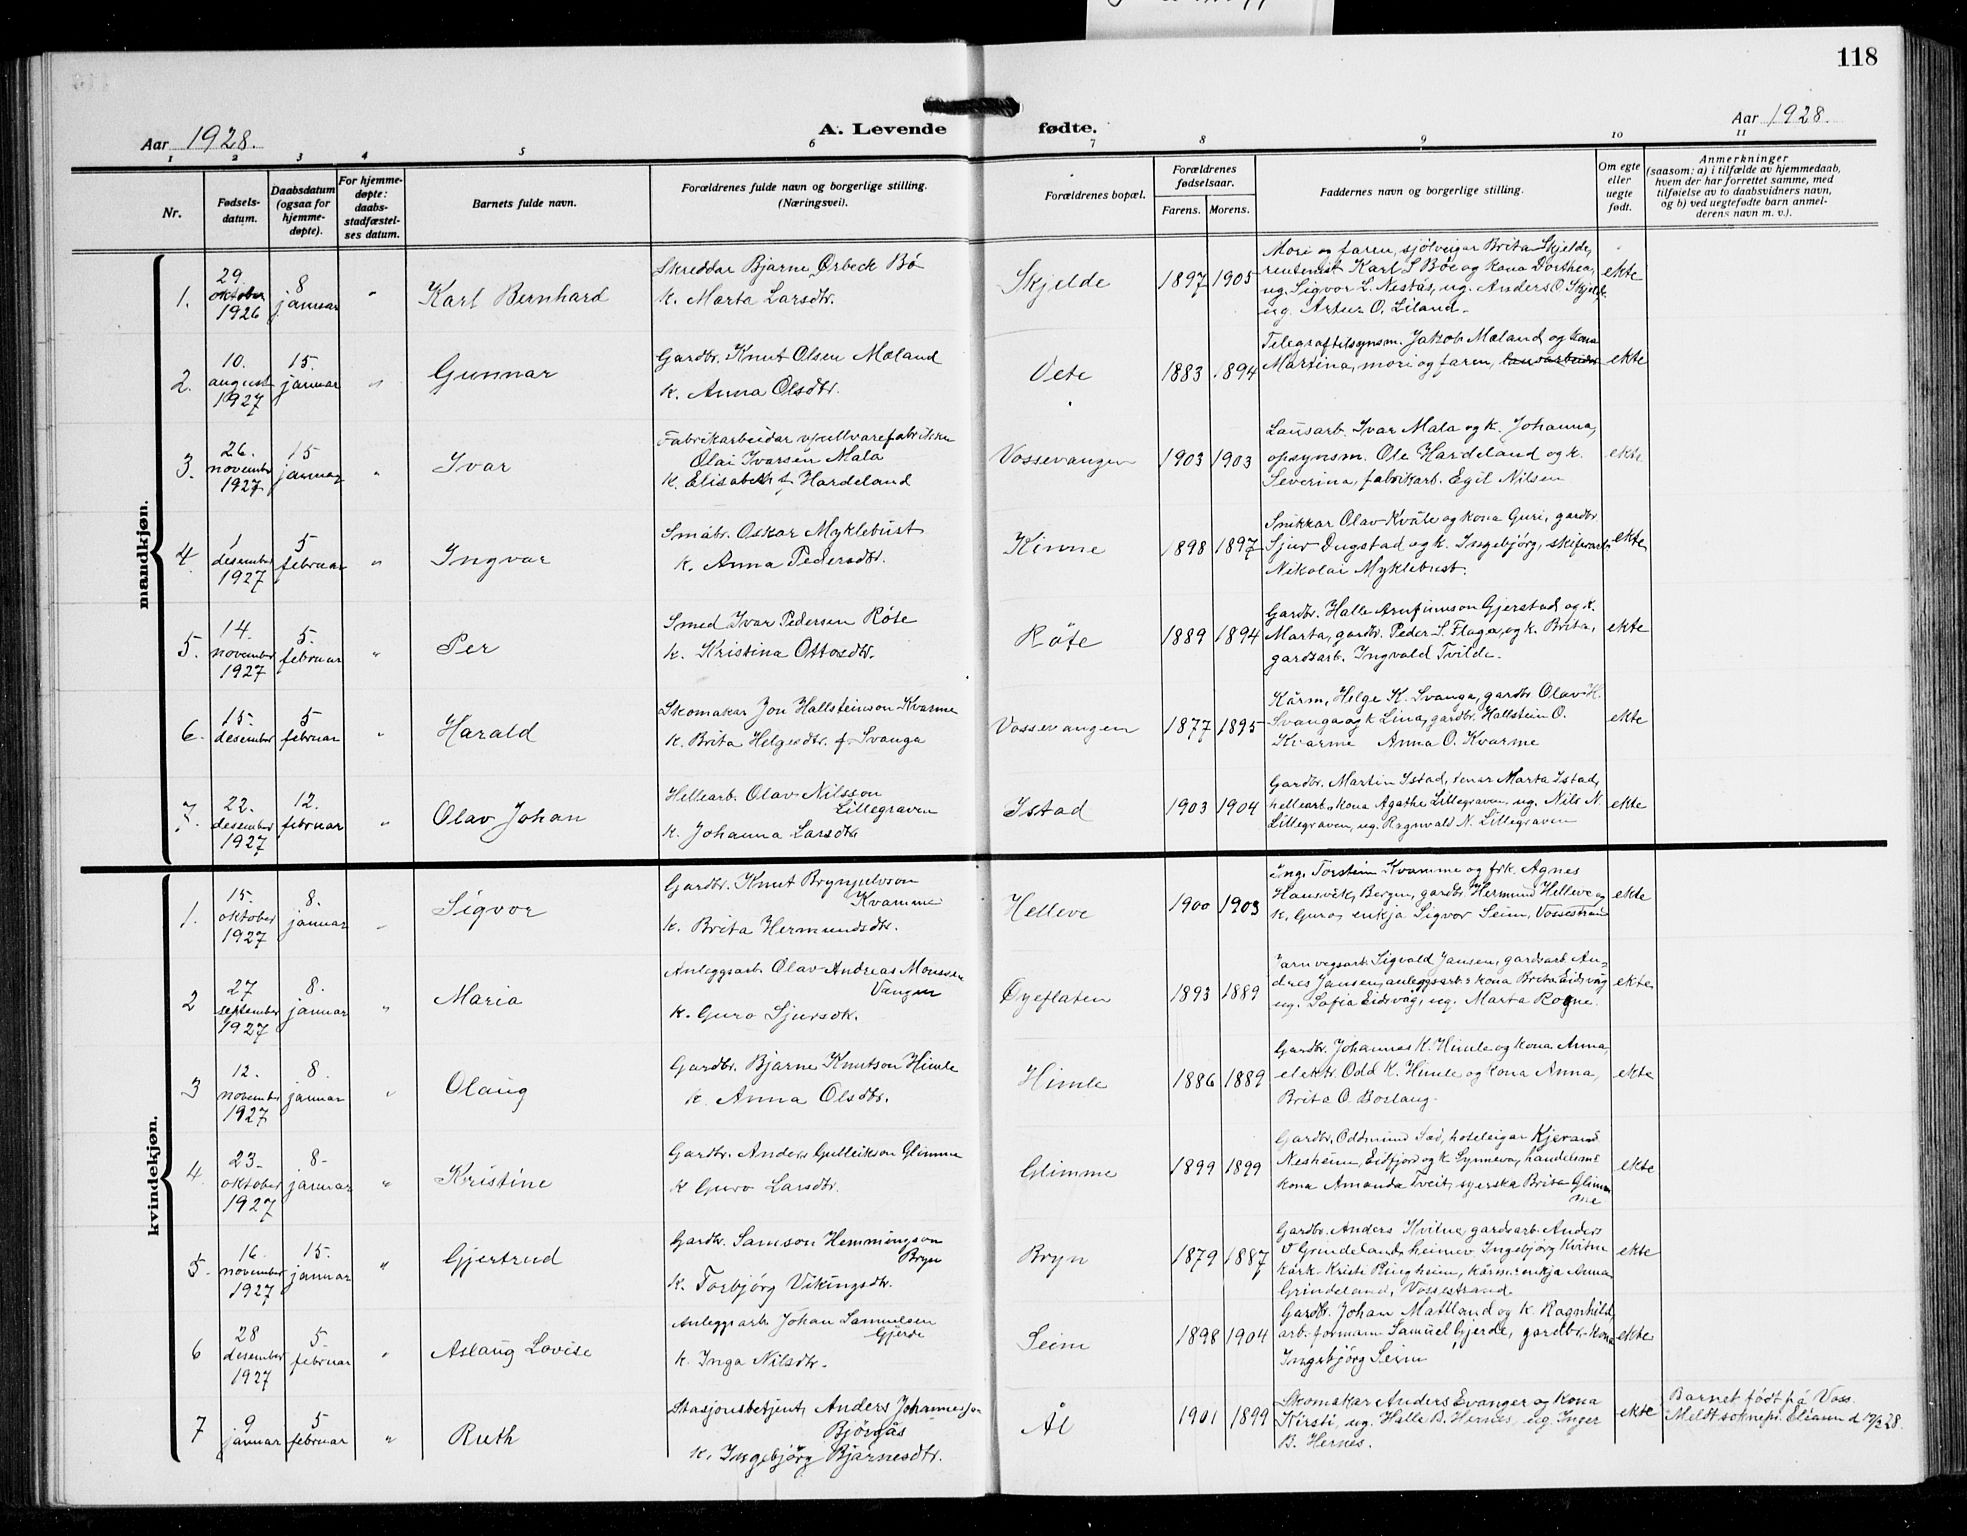 118
Aar 1928.
A. Levende fødte.
Aar 1928.
1 2 3 4 5 6 7 8 9 10 11
Nr.
Fødsels-
datum.
Daabsdatum
(ogsaa for
hjemme-
døpte).
For hjemme-
døpte:
daabs-
stadfæstel-
ses datum.
Barnets fulde navn.
Forældrenes fulde navn og borgerlige stilling.
(Næringsvei).
Forældrenes bopæl.
Forældrenes
fødselsaar.
Farens. Morens.
Faddernes navn og borgerlige stilling.
Om egte
eller
uegte
født.
Anmerkninger
(saasom: a) i tilfælde av hjemmedaab,
hvem der har forrettet samme, med
tilføielse av to daabsvidners navn,
og b) ved uegtefødte barn anmel-
derens navn m. v.).
mandkjøn.
1.
29.
oktober
1926
8
januar
"
Karl Bernhard
Skreddar Bjarne Ørbeck Bö
k. Marta Larsdtr.
Skjelde
1897 1905
Mori og faren, sjölveigar Brita Skjelde,
rentenist Karl S Böe og kona Dorthea,
ug. Sigvor L. Nestås, ug. Anders O. Skjelde
ug. Artur O. Liland.
ekte
2.
10.
august
1927
15.
januar
"
Gunnar
Gardbr. Knut Olsen Mæland
k. Anna Olsdtr.
Vete
1883 1894
Telegraftilsynsm. Jakob Mæland og kona
Martina, mori og faren, lausarbeider
ekte
3.
26.
november
1927
15
januar
"
Ivar
Fabrikarbeidar v/ullvarefabrikken
Olai Ivarsen Mala
k. Elisabeth f. Hardeland
Vossevangen
1903 1903
Lausarb. Ivar Mala og k. Johanna,
opsynsm. Ole Hardeland og k.
Severina, fabrikarb. Egil Nilsen
ekte
4.
1
desember
1927
5
februar
"
Ingvar
Småbr. Oskar Myklebust
k. Anna Pedersdtr.
Kinne
1898 1897
Snikkar Olav Kvåle og kona Guri, gardbr.
Sjur Dugstad og k. Ingebjörg, skiferarb.
Nikolai Myklebust.
ekte
5.
14.
november
1927
5.
februar
"
Per
Smed Ivar Pedersen Röte
k. Kristina Ottosdtr.
Röte
1889 1894
Gardbr. Halle Arnfinnson Gjerstad og k.
Marta, gardbr. Peder S. Flaga, og k. Brita,
gardsarb. Ingvald Tvilde.
ekte
6.
15.
desember
5
februar
"
Harald
Skomakar Jon Hallsteinson Kvarme
k. Brita Helgesdtr. f. Svanga
Vossevangen
1877 1895
Kårm. Helge K. Svanga, gardbr. Olav H.
Svanga og k Lina, gardbr. Hallstein O.
Kvarme Anna O. Kvarme
ekte
7.
22.
desember
1927
12.
februar
"
Olav Johan
Hellearb. Olav Nilsson
Lillegraven
k. Johanna Larsdtr
Istad
1903 1904
Gardbr. Martin Istad, tenar Marta Istad,
hellearb. kona Agathe Lillegraven, ug. Nils N.
Lillegraven, ug. Ragnvald N. Lillegraven
ekte
kvindekjøn.
1.
15.
oktober
1927
8.
januar
"
Sigvor
Gardbr. Knut Brynjulvson
Kvamme
k. Brita Hermundsdtr.
Helleve
1900 1903
Ing. Torstein Kvamme og frk. Agnes
Hansvik, Bergen, gardbr. Hermund Helleve og
k. Guro, enkja Sigvor Seim, Vossestrand
ekte
2
27
september
1927
8.
januar
"
Maria
Anleggsarb. Olav Andreas Monssen
Vangen
k. Guro Sjursdt.
Öyeflaten
1893 1889
Jarnvegsarb. Sigvald Jansen, gardsarb. An-
dres Jansen, anleggsarb.s kona Brita Eidsvåg
ug. Sofia Eidsvåg, ug. Marta Rogne.
ekte
3
12.
november
1927
8.
januar
"
Olaug
Gardbr. Bjarne Knutson Himle
k. Anna Olsdtr.
Himle
1886 1889
Gardbr. Johannes K. Himle og kona Anna,
elektr. Odd K. Himle og kona Anna,
Brita O. Boslaug.
ekte
4.
23.
oktober
1927
8.
januar
"
Kristine
Gardbr. Anders Gulleikson Glimme
k Guro Larsdtr.
Glimme
1899 1899
Gardbr. Oddmund Sæd, hoteleigar Kjerand
Nesheim, Eidfjord og k. Synneva, handelsm.s
kona Amanda Tveit, syerska Brita Glim-
me
ekte
5.
16.
november
1927
15.
januar
"
Gjertrud
Gardbr. Samson Hemmingson
Bryn
k. Torbjörg Vikingsdtr.
Bryn
1879 1887
Gardbr. Anders Kvitne, gardsarb. Anders
V Grindeland, heimev. Ingebjörg Kvitne
kårk. Kristi Ringheim, kårm.s enkja Anna
Grindeland, Vossestrand
ekte
6
28
desember
1927
5.
februar
"
Aslaug Lovise
Anleggsarb. Johan Samuelsen
Gjerde
k. Inga Nilsdtr.
Seim
1898 1904
Gardbr. Johan Matland og k. Ragnhild,
arb. formann Samuel Gjerde, gardbr. kona
Ingebjörg Seim
ekte
7
9
januar
5
februar
"
Ruth
Stasjonsbetjent Anders Johannesson
Björgås
k. Ingebjörg Bjarnesdtr.
Ål
1901 1899
Skomakar Anders Evanger og kona
Kirsti, ug. Halle B. Hernes, ug. Inger
B. Hernes.
ekte
Barnet födt på Voss.
Meldt soknepr. d 17/2 28.